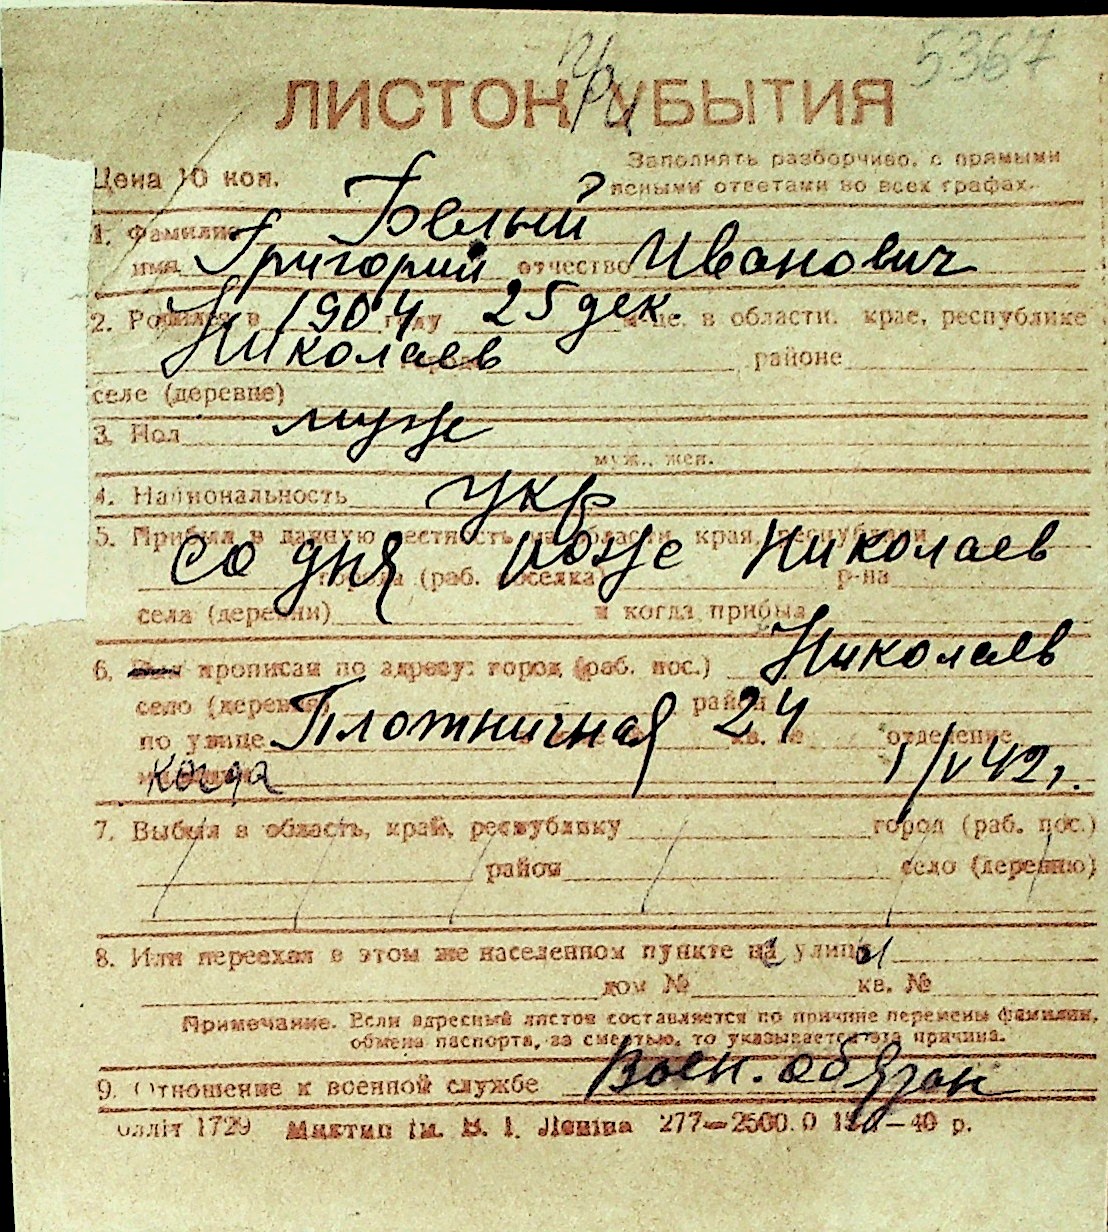 5367
ЛИСТОК при УБЫТИЯ
Цена 10 коп.
Заполнять разборчиво, с прямыми
и ясными ответами во всех графах.
1. Фамилия Белый
имя Григорий отчество Иванович
2. Родился в 1904 году 25 дек. м-це. в области. крае, республике
Николаев городе районе
селе (деревне)
3. Пол муж
муж., жен.
4. Национальность укр
5. Прибыл в данную местность из области, края, республики
со дня рожд Николаев
города (раб. поселка) р-на
села (деревни) и когда прибыл
6. прописан по адресу: город (раб. пос.) Николаев
село (деревня) район
по улице Плотничная 24 кв. № отделение
когда 1/V 42 г.
7. Выбыл в область, край, республику город (раб. пос.)
район село (деревню)
8. Или переехал в этом же населенном пункте с улицы
дом № кв. №
Примечание. Если адресный листок составляется по причине перемены фамилии,
обмена паспорта, за смертью, то указывается эта причина.
9. Отношение к военной службе Воен. обязан
Обліт 1729 Миктип ім. В. І. Леніна 277—2500.0 40 р.